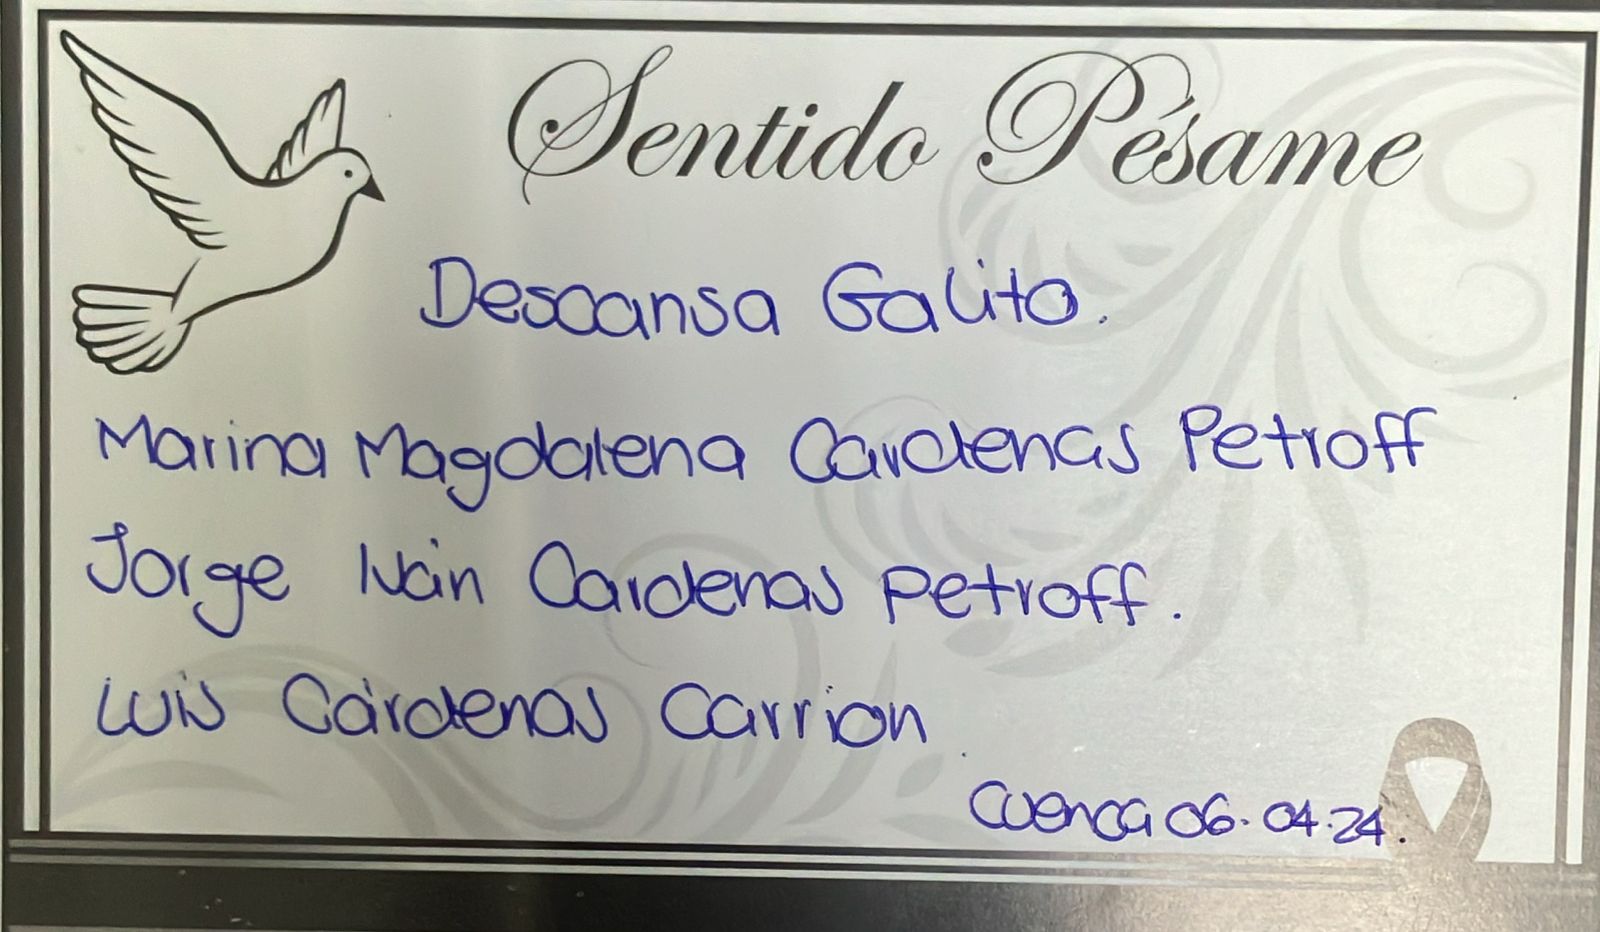 Sentido Pésame
Descansa Galito.
Marina Magdalena Cardenas Petroff
Jorge Iván Cardenas Petroff.
Luis Cárdenas Carrion.
Cuenca 06.04.24.